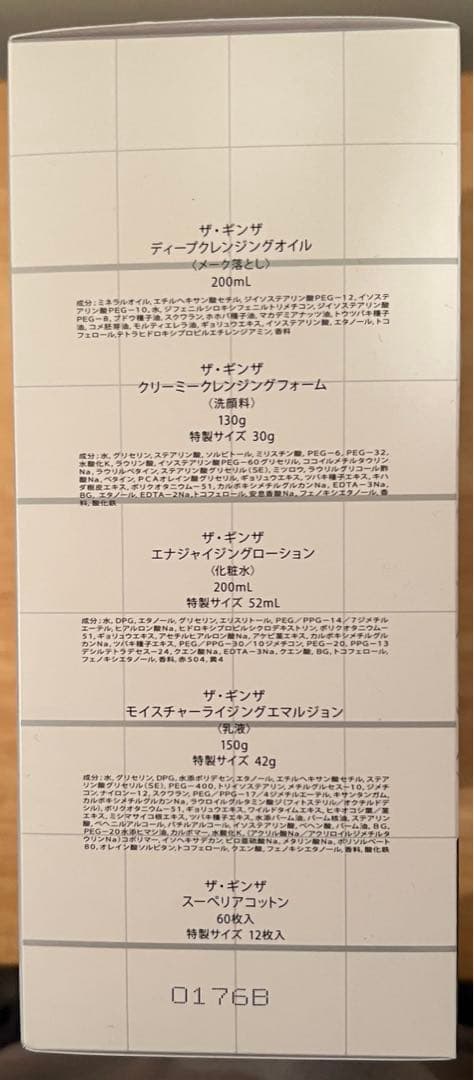 ザ・ギンザ
ディープクレンジングオイル
〈メーク落とし〉
200mL
成分：ミネラルオイル, エチルヘキサン酸セチル, ジイソステアリン酸PEG-12, イソステ
アリン酸PEG-10, 水, ジフェニルシロキシフェニルトリメチコン, ジイソステアリン酸
PEG-8, ブドウ種子油, スクワラン, ホホバ種子油, マカデミアナッツ油, トウツバキ種子
油, コメ胚芽油, モルティエレラ油, ギョリュウエキス, イソステアリン酸, エタノール, トコ
フェロール, テトラヒドロキシプロピルエチレンジアミン, 香料
ザ・ギンザ
クリーミークレンジングフォーム
〈洗顔料〉
130g
特製サイズ 30g
成分：水, グリセリン, ステアリン酸, ソルビトール, ミリスチン酸, PEG-6, PEG-32,
水酸化K, ラウリン酸, イソステアリン酸PEG-60グリセリル, ココイルメチルタウリン
Na, ラウリルベタイン, ステアリン酸グリセリル(SE), ミツロウ, ラウリルグリコール酢
酸Na, ベタイン, PCAオレイン酸グリセリル, ギョリュウエキス, ツバキ種子エキス, キハ
ダ樹皮エキス, ポリクオタニウム-51, カルボキシメチルグルカンNa, EDTA-3Na,
BG, エタノール, EDTA-2Na, トコフェロール, 安息香酸Na, フェノキシエタノール, 香
料, 酸化鉄
ザ・ギンザ
エナジャイジングローション
〈化粧水〉
200mL
特製サイズ 52mL
成分：水, DPG, エタノール, グリセリン, エリスリトール, PEG/PPG-14/7ジメチル
エーテル, ヒアルロン酸Na, ヒドロキシプロピルシクロデキストリン, ポリクオタニウム-
51, ギョリュウエキス, アセチルヒアルロン酸Na, アケビ茎エキス, カルボキシメチルグル
カンNa, ツバキ種子エキス, PEG/PPG-30/10ジメチコン, PEG-20, PPG-13
デシルテトラデセス-24, クエン酸Na, EDTA-3Na, クエン酸, BG, トコフェロール,
フェノキシエタノール, 香料, 赤504, 黄4
ザ・ギンザ
モイスチャーライジングエマルジョン
〈乳液〉
150g
特製サイズ 42g
成分：水, グリセリン, DPG, 水添ポリデセン, エタノール, エチルヘキサン酸セチル, ステア
リン酸グリセリル(SE), PEG-400, トリイソステアリン, メチルグルセス-10, ジメチ
コン, ナイロン-12, スクワラン, PEG/PPG-17/4ジメチルエーテル, キサンタンガム,
カルボキシメチルグルカンNa, ラウロイルグルタミン酸ジ(フィトステリル/オクチルドデ
シル), ポリクオタニウム-51, ギョリュウエキス, ワイルドタイムエキス, ヒキオコシ葉/茎
エキス, ミシマサイコ根エキス, ツバキ種子エキス, 水添パーム油, パーム核油, ステアリン
酸, ベヘニルアルコール, バチルアルコール, イソステアリン酸, ベヘン酸, パーム油, BG,
PEG-20水添ヒマシ油, カルボマー, 水酸化K, (アクリル酸Na/アクリロイルジメチルタ
ウリンNa)コポリマー, イソヘキサデカン, ピロ亜硫酸Na, メタリン酸Na, ポリソルベート
80, オレイン酸ソルビタン, トコフェロール, クエン酸, フェノキシエタノール, 香料, 酸化鉄
ザ・ギンザ
スーペリアコットン
60枚入
特製サイズ 12枚入
0176B